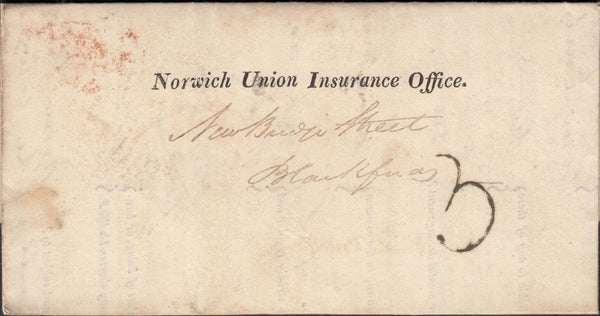 Norwich Union Insurance Office.
New Bridge Street
Blackfrias
3